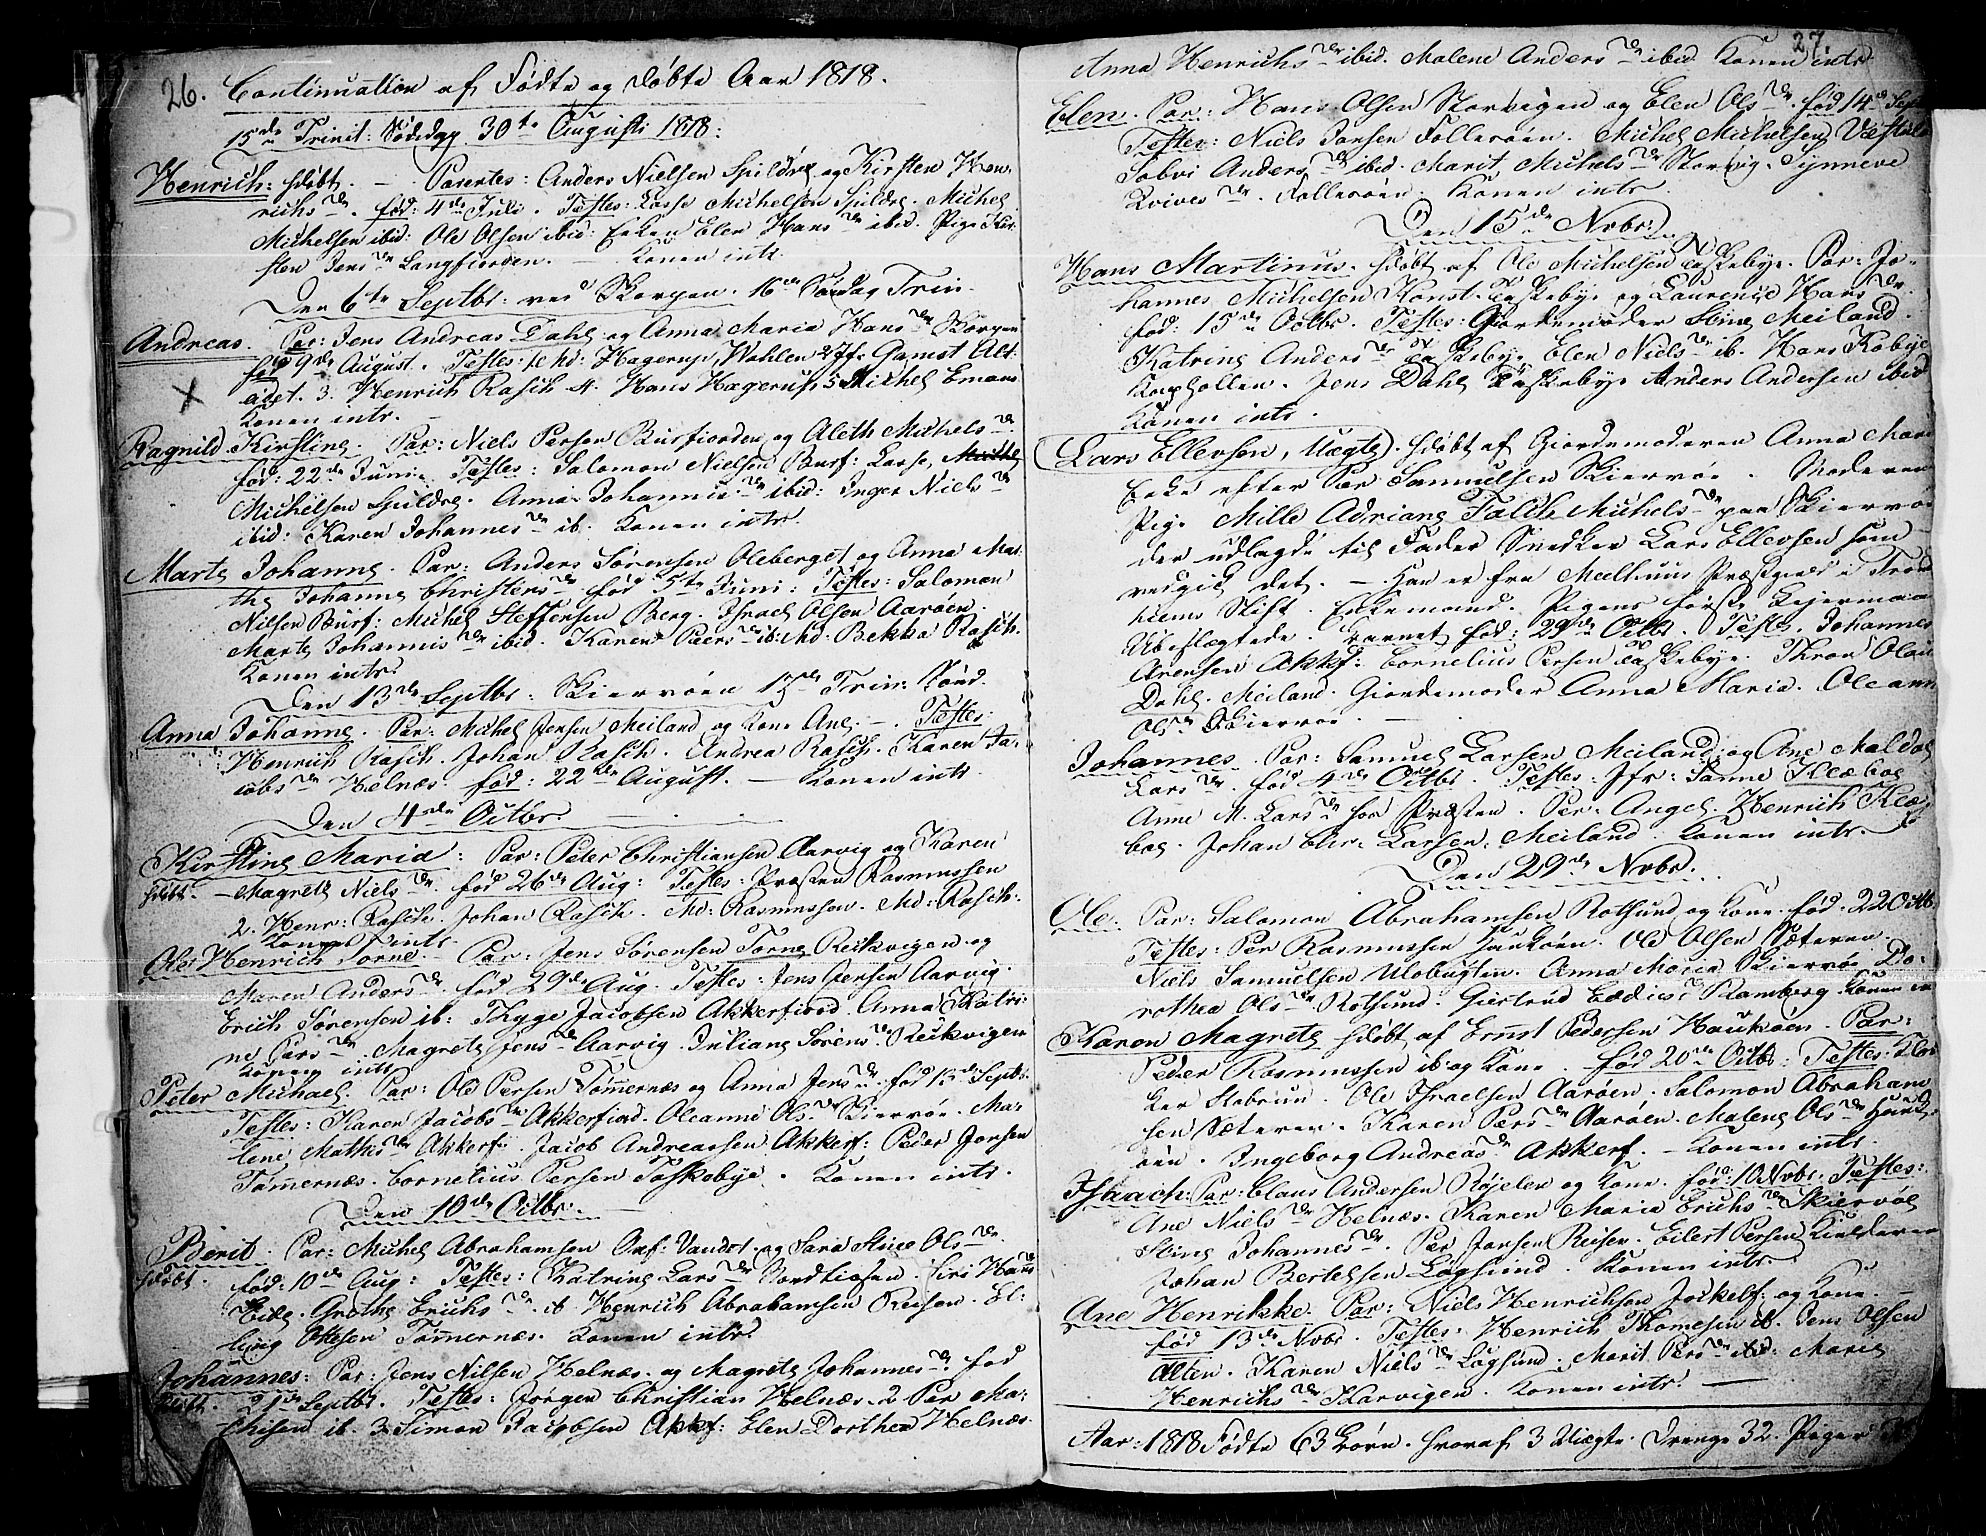 26. Continuation af Fødte og døbte Aar 1818.
15de Trinit: Søndag 30te Augusti 1818:
Henrich: hdøbt. — Parentes: Anders Nielsen Spildre og Kirsten Hen-
richsdr. fød: 4de Juli. Testes: Lasse Michelsen Spildre. Michel
Michelsen ibid: Ole Olsen ibid: Enken Elen Hansdr ibid. Pige Kir-
sten Jensdr Langfiorden. — Konen intr.
Den 6te Septbr: ved Skorpen. 16de Søndag Trin.
Andreas. Par: Jens Andreas Dahl og Anna Maria Hansdr Skorpen
fød 9de August. Testes: Hagerup, Wahlen Gamst Alt-
adet. 3. Henrich Rasch 4. Hans Hagerup 5 Michel Emans
Konen intr. —
Ragnild Kirstine. Par: Niels Persen Burfiorden og Aleth Michelsdr
fød: 22de Juni. Testes: Salomon Nielsen Burf: Lasse
Michelsen Spildre. Anna Johannisdr ibid: Inger Nielsdr
ibid: Karen Johannesdr ib. Konen intr.
Marte Johanne. Par: Anders Sørensen Oleberget og Anna Mar-
the Johanna Christensdr fød 5te Juni: Testes: Salomon
Nilsen Burf: Michel Steffensen Berg. Israel Olsen Aarøen.
Marte Johannisdr ibid. Karen Peersdr ib: Md. Bekka Rasch.
Konen intr.
Den 13de Septbr: Skiervøen Trin: Sønd.
Anna Johanne. Par: Michel Jensen Meiland og Kone Ane. —. Testes:
Henrich Rasch. Johan Rasch. Andrea Rasch. Karen Ja-
cobsdr Helnæs. fød: 22de August. — Konen intr.
Den 4de Octbr.
Kirstine Maria: Par: Peter Christiansen Aarvig og Karen
hdøbt. — Magrete Nielsdr. fød 26de Aug: Testes: Præsten Rasmussen
2. Henr: Rasch. Johan Rasch. Md: Rasmussen. Md: Rasch.
Konen intr.
Ole Henrich Torne. — Par: Jens Sørensen Torne Reikvigen og
Maren Andersdr. fød 29de Aug. Testes: Jens Jensen Aarvig.
Erich Sørensen ib: Thyge Jacobsen Akkerfiord. Anna Katri-
ne Persdr. Magrete Jensdr Aarvig. Juliane Sørensdr Reikvigen
Konen intr.
Peter Michael. Par: Ole Persen Tømmernæs og Anna Jensdr. fød Septbr.
Testes: Karen Jacobsdr Akkerfiord. Oleanne Olsdr Skiervøe. Ma-
lene Mathisdr Akkerf: Jacob Andreassen Akkerf: Peder Jensen
Tømmernæs. Cornelius Persen Taskebye. Konen intr.
Den 10de Octbr.
Berit. Par: Michel Abrahamsen Oxf: Vandet. og Sara Stine Olsdr.
hdøbt. fød: 10de Aug: Testes: Katrine Larsdr Nordreisen. Siri
Grethe Erichsdr ib Henrich Abrahamsen Reisen. El-
ling Ottesen Tømmernæs. Konen intr.
Johannes: Par: Jens Nilsen Helnæs. og Magrete Johannesdr fød
hdøbt. 21de Septbr. Testes: Jørgen Christian Helnæs. 2 Per Ma-
thisen ib. 3 Simon Jacobsen Akkf: Elen Dorthea Helnæs.
27.
Anna Henrichsdr ibid. Malene Andersdr ibid Konen intr
Elen. Par: Hans Olsen Storvigen og Elen Olsdr. fød 14de Sept
Testes: Niels Jansen Follesøen. Michel Michelsen
Andersdr ibid. Marit Michelsdr Storvig. Synneve
dr. Follesøen. Konen intr.
Den 15de Novbr.
Hans Martinus. hdøbt af Ole Michelsen Taskebye. Par: Jo-
hannes Michelsen Konst. Taskebye og Laurence Hansdr.
fød: 15de Octbr. Testes: Giordemoder Stine Meiland.
Katrine Andersdr Taskebye Elen Nielsdr ib. Hans Kobye
Jens Dahl Taskebye Anders Andersen ibid
Konen intr.
Lars Ellevsen, Uægte. hdøbt af Giordemoderen Anna Mar
Enke efter Per Samuelsen Skiervøe. Moderen
Pige Mille Adriane Falch Michelsdr paa Skiervøe
der udlagde til Fader Snedker Lars Ellevsen som
vedgik det. — Han er fra Meelhuus Præstgield i Trond
hiems Stift. Enkemand. Pigens første Leiermaal
Ubeslægtede. Barnet fød: 29de Octbr. Testes. Johannes
Arensen Akkf: Cornelius Persen Taskebye. Thron Olau
Dahl. Meiland. Giordemoder Anna Maria. Oleanna
Olsdr Skiervøe. —
Johannes. Par: Samuel Larsen Meiland og Ane Maldas
Larsdr. fød 4de Octbr. Testes: Jfr: Hanne Klæboe
Anne M. Larsdr hos Præsten. Per. Angel. Henrich Klæ-
boe. Johan Chr: Larsen, Meiland. Konen intr.
Den 29de Novbr.
Ole. Par: Salomon Abrahamsen Rotsund og Kone. fød. 22 Octbr.
Testes: Per Rasmussen Haukøen. Ole Olsen Sæteren.
Niels Samuelsen Ulobugten. Anna Maria Skiervøe Do-
rothea Olsdr Rotsund. Giertrud Ramberg Konen in
Karen Magrete hdøbt af Ernst Pedersen Haukøen. Par:
Peder Rasmussen ib og Kone. fød 20de Octbr: Testes: Klo-
ker Stabrun. Ole Israelsen Aarøen. Salomon Abraham
sen Sæteren. Karen Persdr Aarøen. Malene Olsdr Hauk-
øen. Ingeborg Andreasdr Akkerf. — Konen intr.
Isaach: Par: Claus Andersen Røjelen og Kone. fød: 10 Novbr. Testes:
Ane Nielsdr Helnæs. Karen Maria Erichsdr Skiervøe
Stine Johannesdr. Per Jansen Reisen. Eilert Persen Kielderen
Johan Bertelsen Løgsund. Konen intr.
Ane Henrikke. Par: Niels Henrichsen Jockelf. og Kone. —
fød 13de Novbr. Testes: Henrich Thomesen ib. Jens Olsen
Alten. Karen Nielsdr Løgsund. Marit Persdr ibid: Maria
Henrichsdr Karvigen. Konen intr. —
Aar: 1818 Fødte 63 Børn. hvoraf 3 Uægte. Drenge 32. Piger